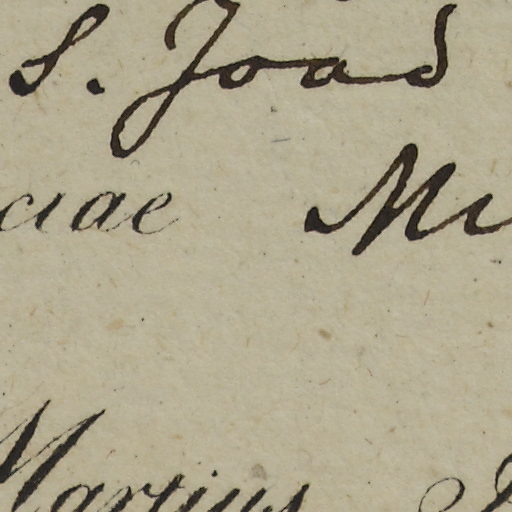 S. Joad
ciae Mi
Martius